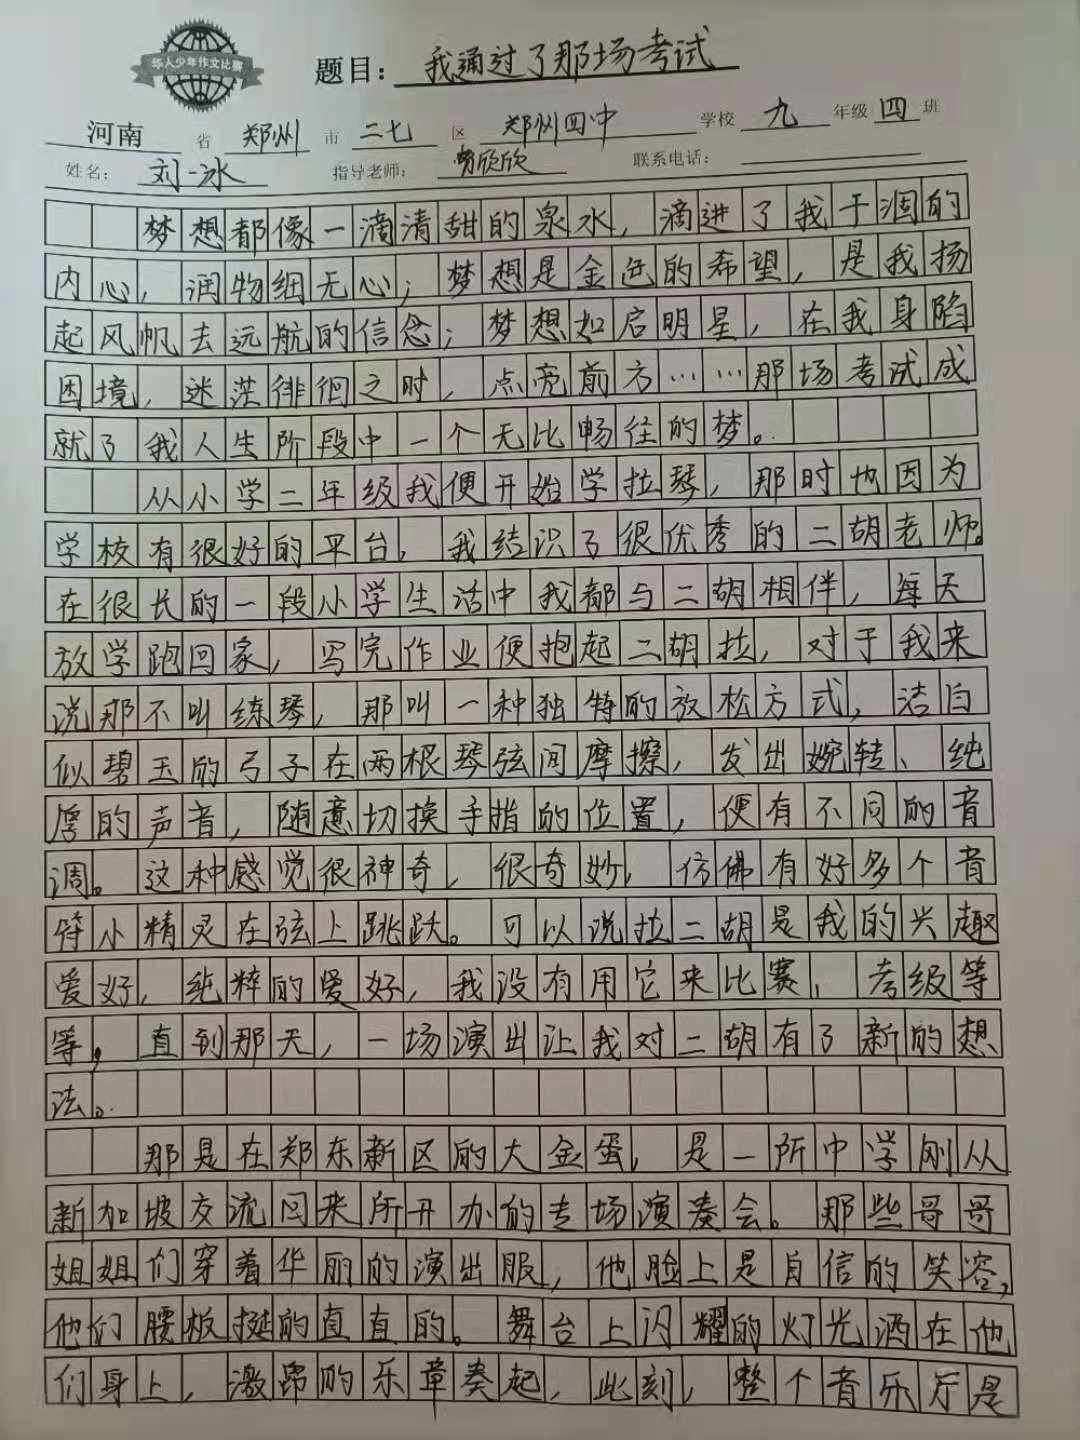 华人少年作文比赛
题目：我通过了那场考试
河南省 郑州市 二七区 郑州四中学校 九年级 四班
姓名：刘一冰 指导老师：欣欣 联系电话：
梦想都像一滴清甜的泉水，滴进了我干涸的
内心，润物细无心；梦想是金色的希望，是我扬
起风帆去远航的信念；梦想如启明星，在我身陷
困境，迷茫徘徊之时，点亮前方……那场考试成
就了我人生阶段中一个无比畅佳的梦。
从小学二年级我便开始学拉琴，那时也因为
学校有很好的平台，我结识了很优秀的二胡老师。
在很长的一段小学生活中我都与二胡相伴，每天
放学跑回家，写完作业便抱起二胡拉，对于我来
说那不叫练琴，那叫一种独特的放松方式，洁白
似碧玉的弓子在两根琴弦间摩擦，发出婉转、纯
厚的声音，随意切换手指的位置，便有不同的音
调。这种感觉很神奇，很奇妙，仿佛有好多个音
符小精灵在弦上跳跃。可以说拉二胡是我的兴趣
爱好，纯粹的爱好，我没有用它来比赛、考级等
等，直到那天，一场演出让我对二胡有了新的想
法。
那是在郑东新区的大金蛋，是一所中学刚从
新加坡交流回来所开办的专场演奏会。那些哥哥
姐姐们穿着华丽的演出服，他脸上是自信的笑容，
他们腰板挺的直直的。舞台上闪耀的灯光洒在他
们身上，激昂的乐章奏起，此刻，整个音乐厅是